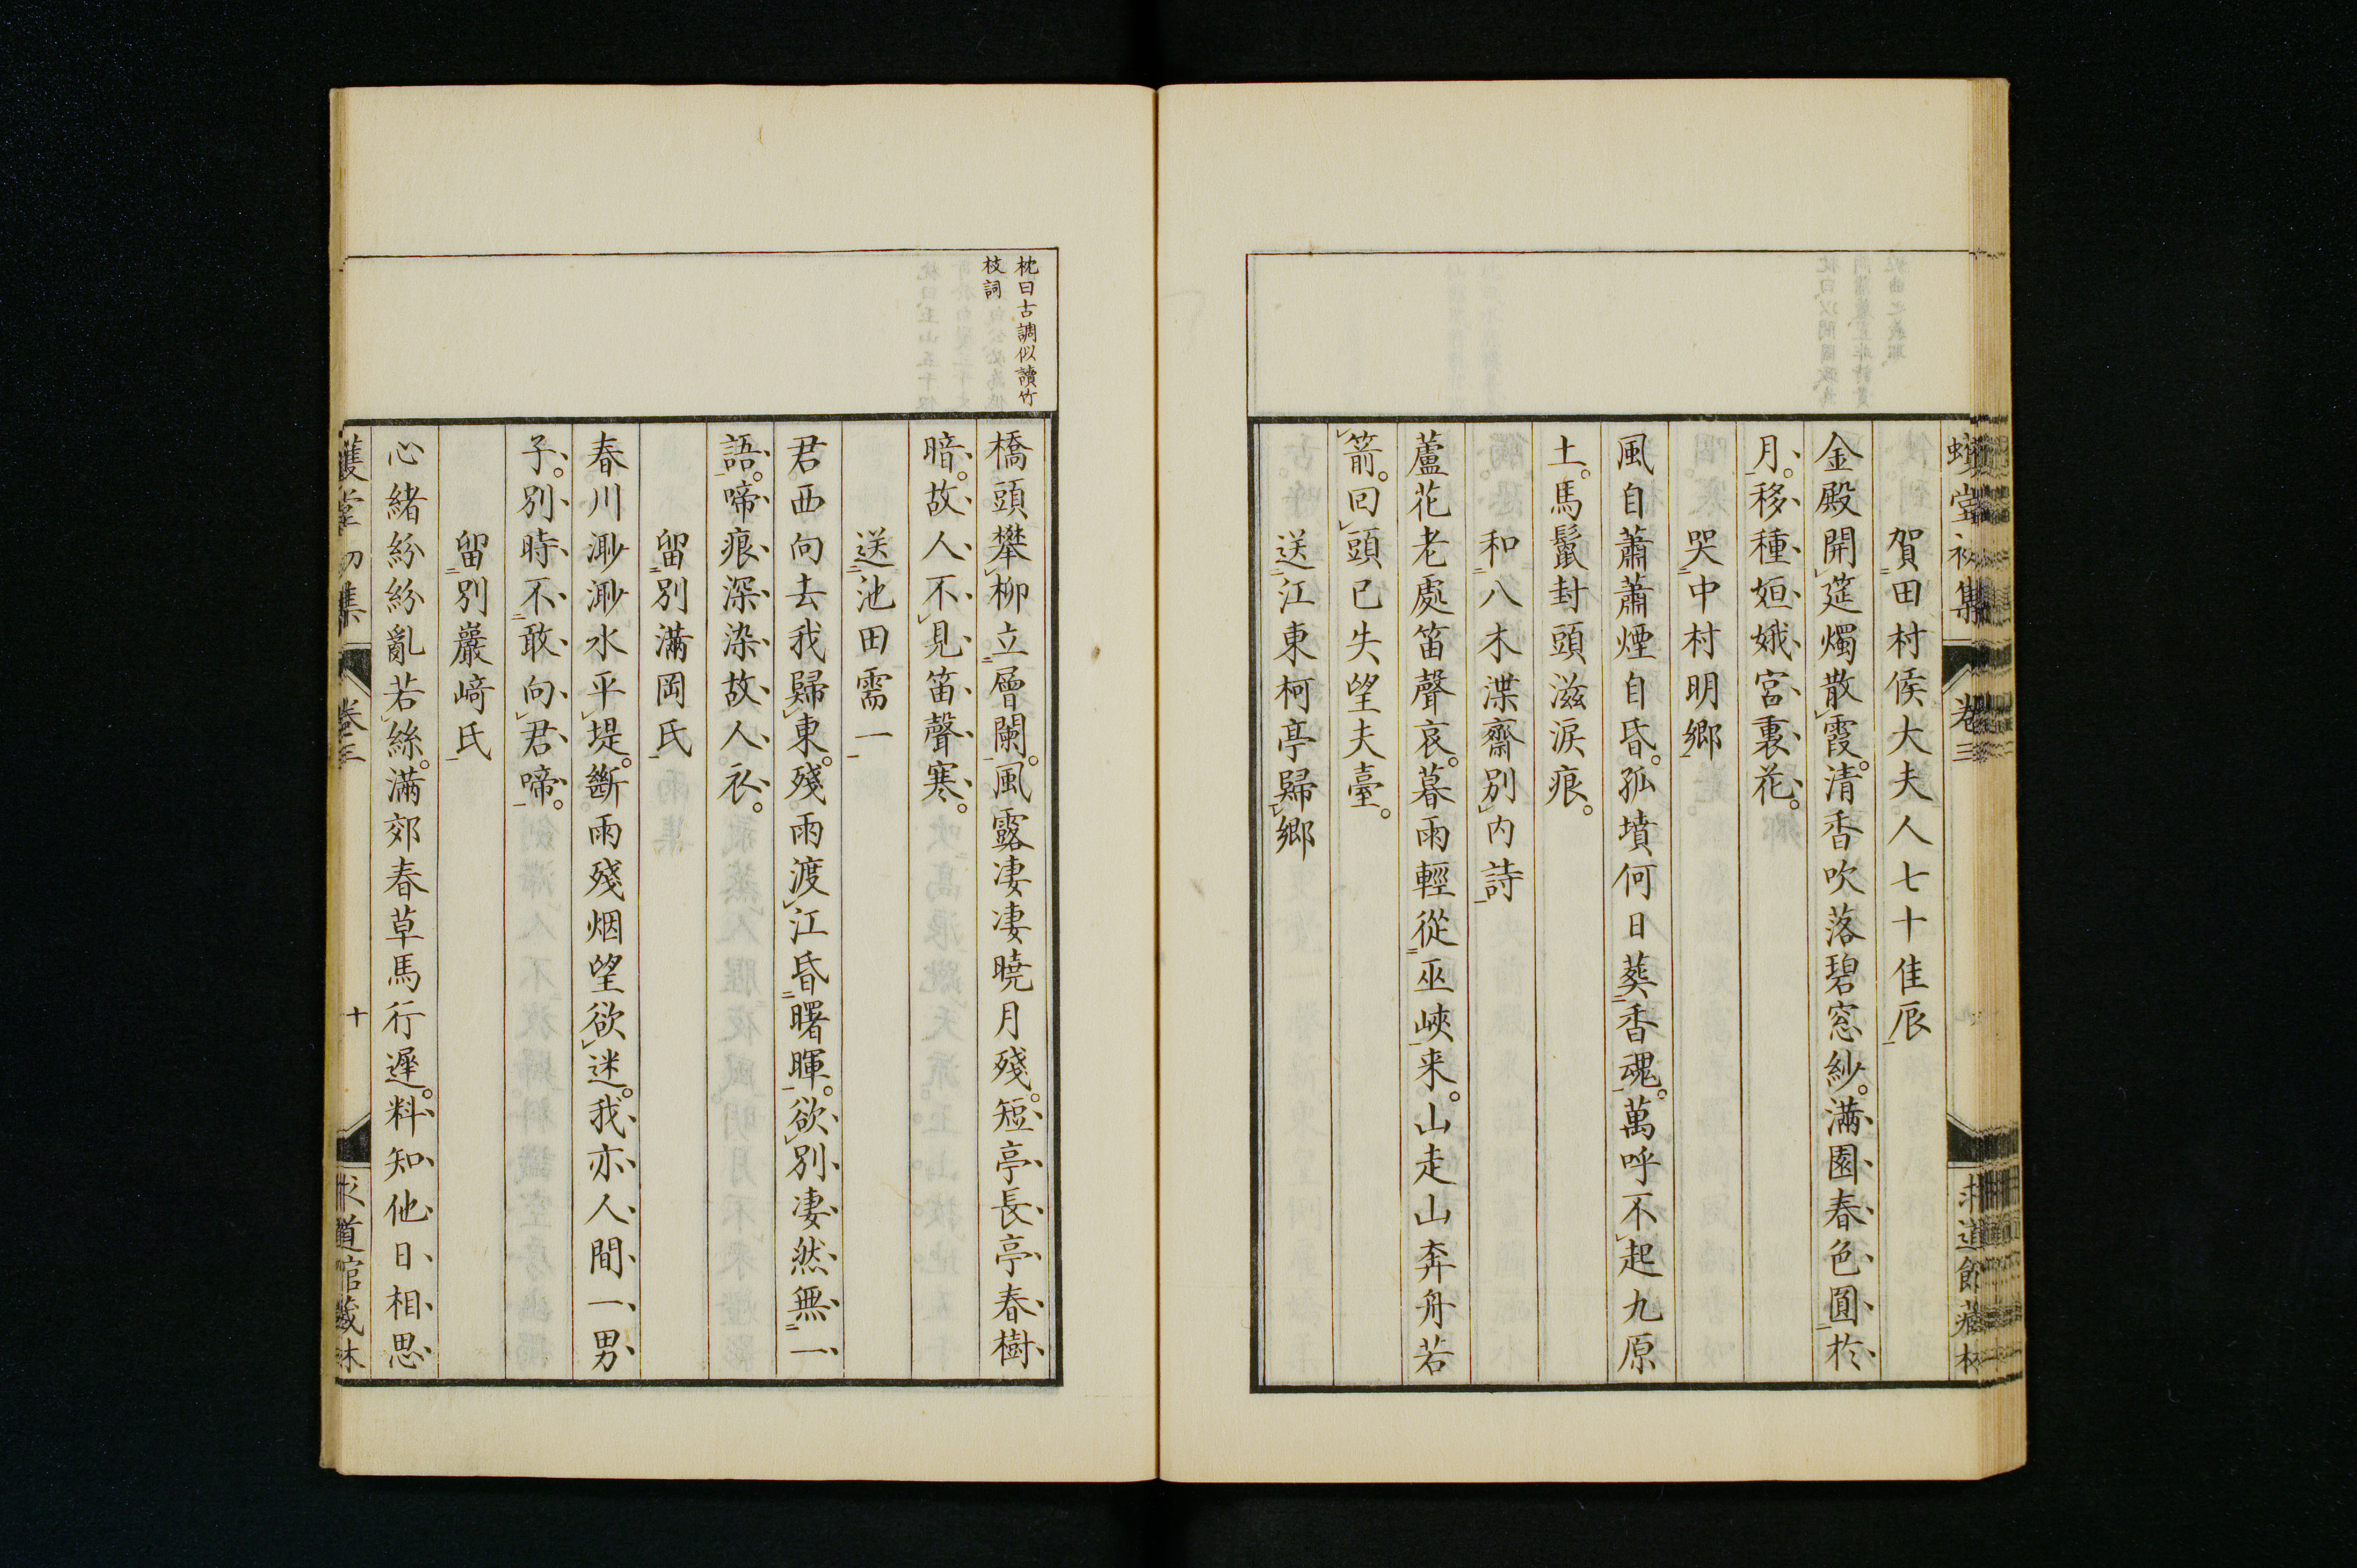 堂初集 卷三
賀田村侯大夫人七十佳辰
金殿開筵燭散霞。清香吹落碧窓紗。滿園春色圓於
月。移種姮娥宮裏花。
哭中村明鄉
風自蕭蕭煙自昏。孤墳何日葬香魂。萬呼不起九原
土。馬鬣封頭滋淚痕。
和八木渫齋別內詩
蘆花老處笛聲哀。暮雨輕從巫峽来。山走山奔舟若
箭。回頭已失望夫臺。
送江東柯亭歸鄉
枕曰古調似讀竹
枝詞
橋頭攀柳立層闌。風露凄凄曉月殘。短亭長亭春樹
暗。故人不見笛聲寒。
送池田需一
君西向去我歸東。殘雨渡江昏曙暉。欲別凄然無一
語。啼痕深染故人衣。
留別滿岡氏
春川渺渺水平堤。斷雨殘烟望欲迷。我亦人間一男
子。別時不敢向君啼。
留別巖﨑氏
心緒紛紛亂若絲。滿郊春草馬行遲。料知他日相思
堂初集 卷三 十 求道館藏